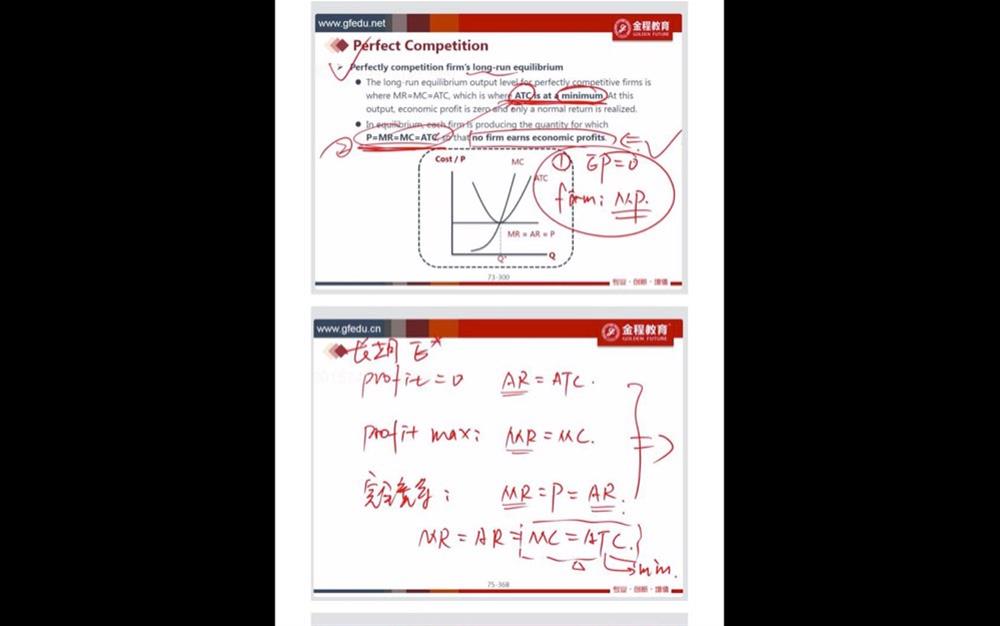 www.gfedu.net
金程教育
GOLDEN FUTURE
Perfect Competition
➢ Perfectly competition firm's long-run equilibrium
● The long-run equilibrium output level for perfectly competitive firms is
where MR=MC=ATC, which is where ATC is at a minimum. At this
output, economic profit is zero and only a normal return is realized.
● In equilibrium, each firm is producing the quantity for which
② P=MR=MC=ATC so that no firm earns economic profits.
Cost / P
MC
ATC
① EP=0
firm: N.P.
MR = AR = P
Q*
Q
73-300
专业·创新·增值
www.gfedu.cn
金程教育
GOLDEN FUTURE
长期 E*
profit=0 AR=ATC.
profit max: MR=MC.
完全竞争: MR=P=AR.
MR=AR=MC=ATC.
min.
75-368
专业·创新·增值